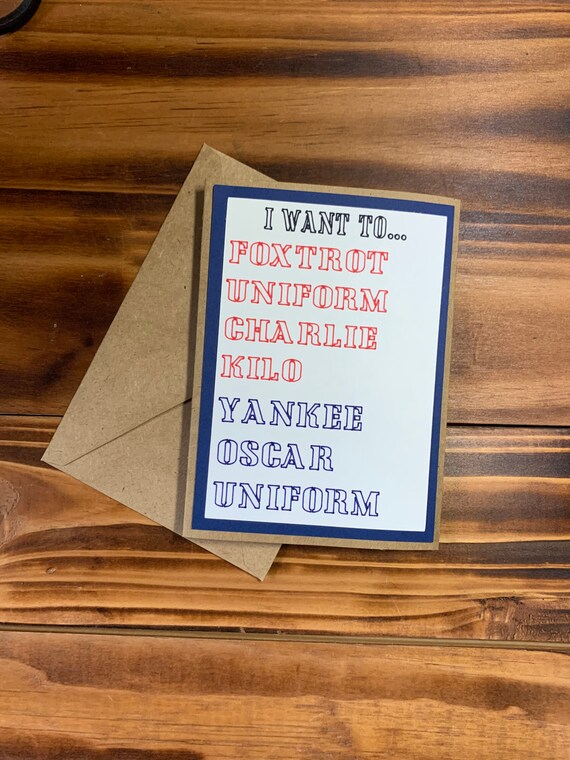 I WANT TO...
FOXTROT
UNIFORM
CHARLIE
KILO
YANKEE
OSCAR
UNIFORM